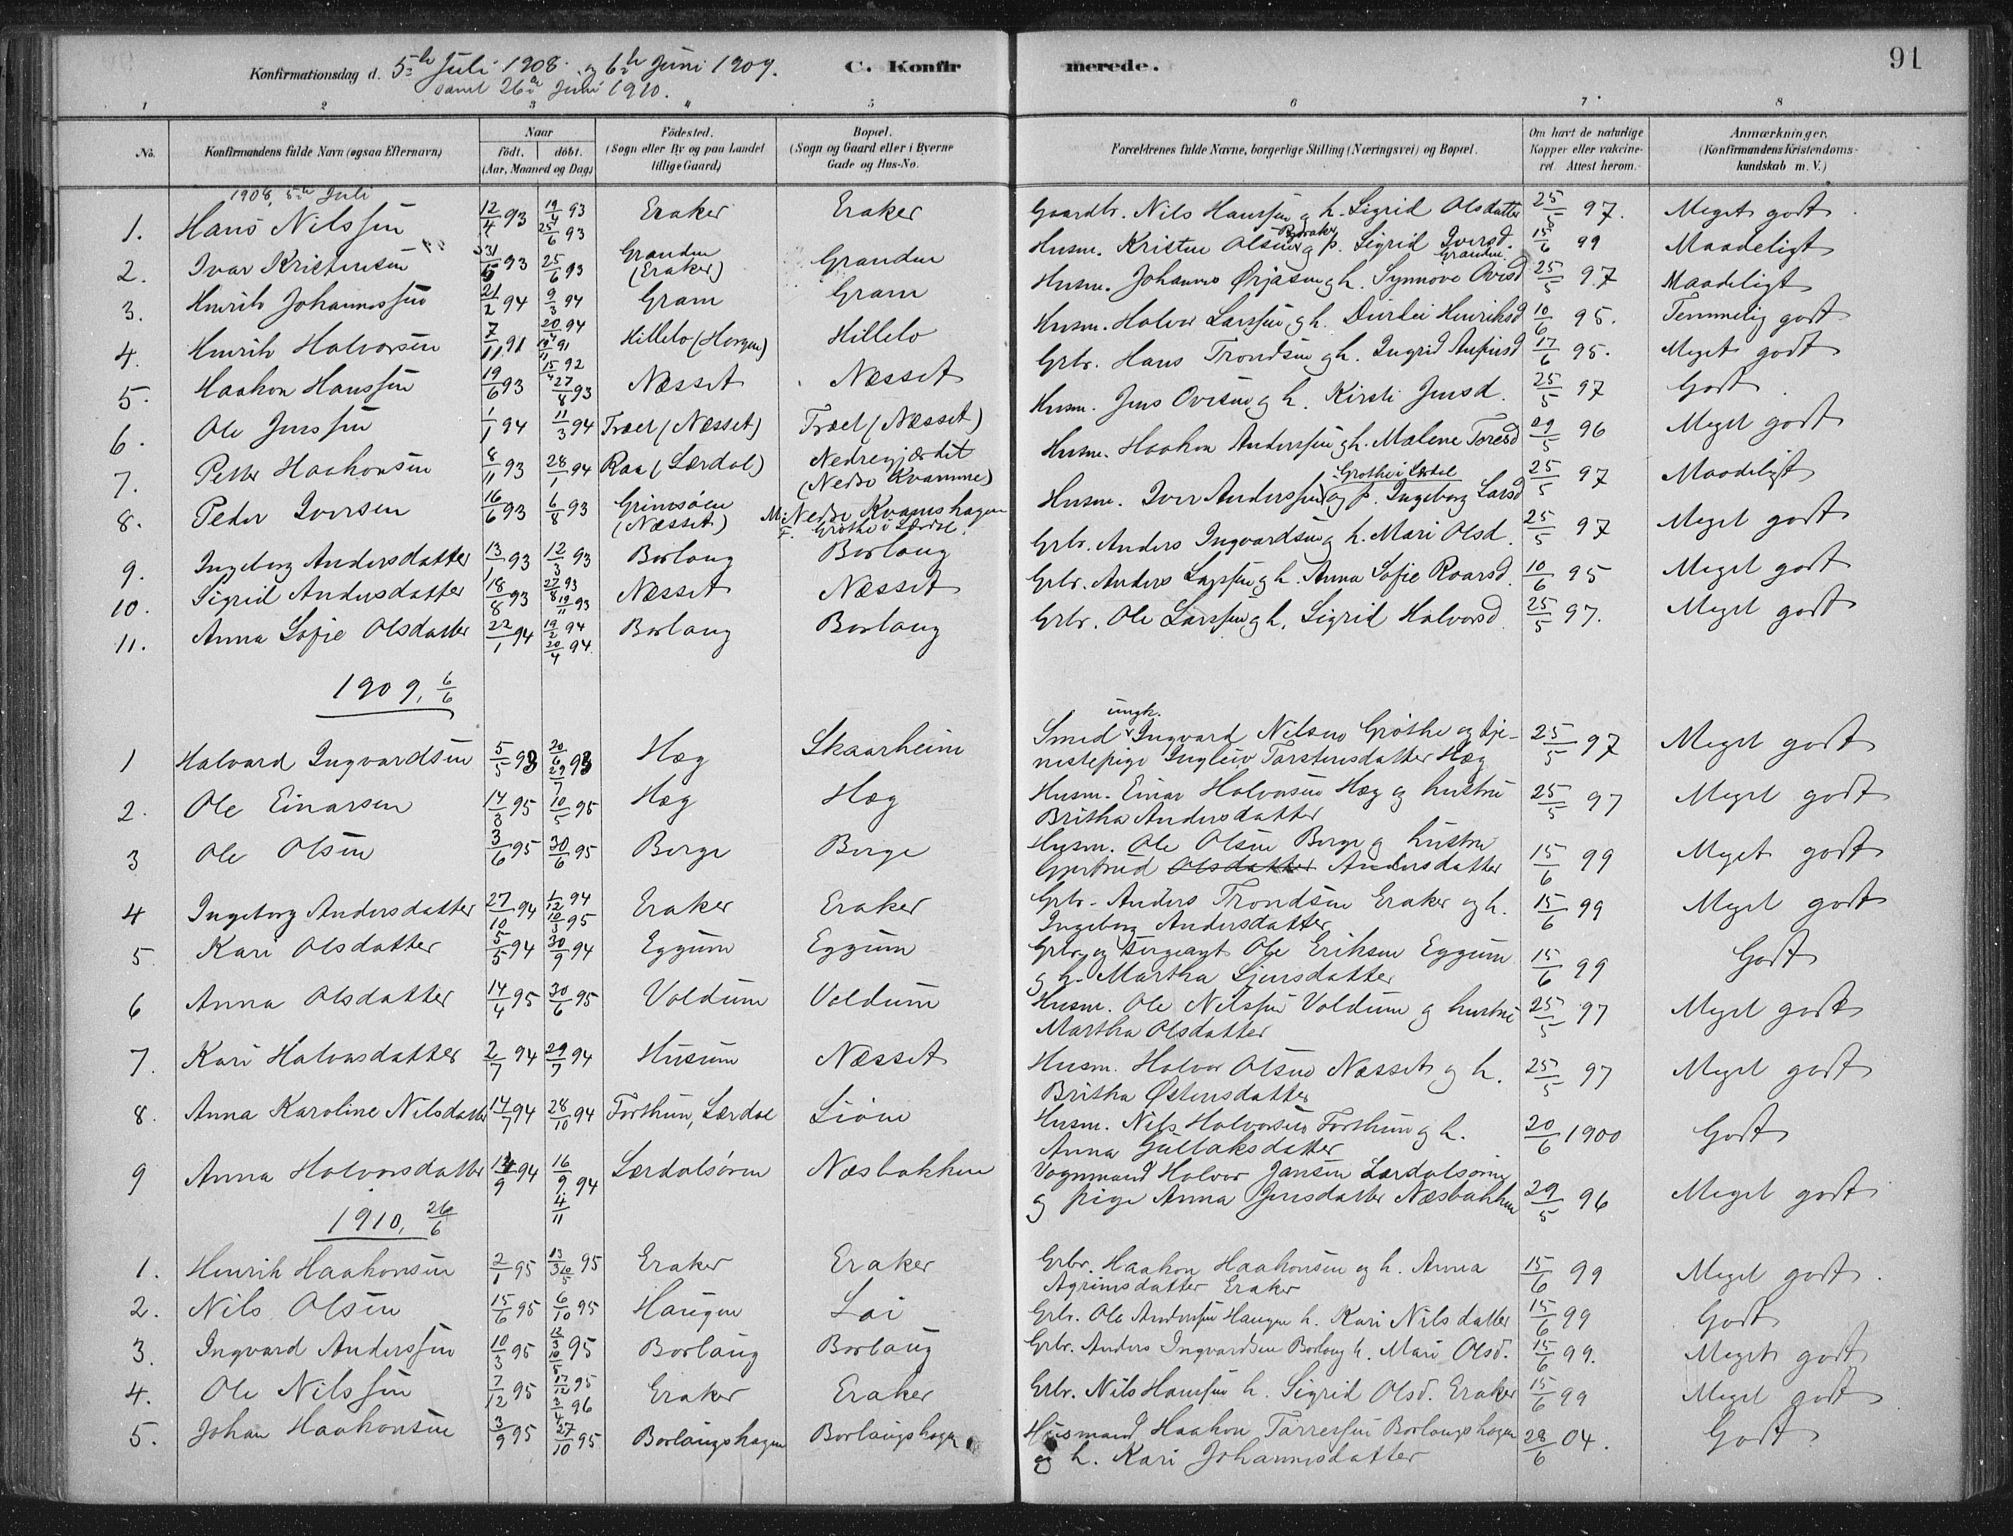 Konfirmationsdag d. 5te Juli 1908 og 6te Juni 1909. C. Konfirmerede. 91
samt 26de Juni 1910.
1 2 3 4 5 6 7 8
No. Konfirmandens fulde Navn (ogsaa Efternavn) Naar født. døbt. (Aar, Maaned og Dag) Fødested. (Sogn eller By og paa Landet tillige Gaard) Bopæl. (Sogn og Gaard eller i Byerne Gade og Hus-No. Forældrenes fulde Navne, borgerlige Stilling (Næringsvei) og Bopæl. Om havt de naturlige Kopper eller vakcineret. Attest herom. Anmærkninger. (Konfirmandens Kristendomskundskab m. V.)
1908, 5te Juli
1. Hans Nilssen 12/4 93 19/4 93 25/6 93 Eraker Eraker Gaardbr. Nils Hanssen og h. Sigrid Olsdatter 25/5 97. Meget godt
2. Ivar Kristensen 31/5 93 25/6 93 Granden (Eraker) Granden Husm. Kristen Olsen og p. Sigrid Iversd. Granden 15/6 99 Maadeligt
3. Henrik Johannessen 21/2 94 9/3 94 20/4 94 Gram Gram Husm. Johannes Ørjasen og h. Synnove Ovesd 25/5 97 Maadeligt
4. Henrik Halvorsen 7/11 91 91 15/4 92 Hillelo (Horgen) Hillelo Husm. Halvor Larssen og h. Durdei Henriksd 10/6 95. Temmelig godt
5. Haakon Hanssen 19/6 93 27/8 93 Næsset Næsset Grbr. Hans Trondsen og h. Ingrid 17/6 95. Meget godt
6. Ole Jenssen 1/1 94 11/3 94 Træet (Næsset) Træet (Næsset) Husm. Jens Ovesen og h. Kirsti Jensd. 25/5 97 Godt
7. Petter Haakonsen 8/11 93 28/1 94 Raa (Lærdal) Nedregjærdet (Nedre Kvamme) Husm. Haakon Anderssen og h. Malene Toresd 29/5 96 Meget godt
8. Peder Iversen 16/6 93 6/8 93 Grimsøen (Næsset) M: Nedre Kvamshagen F. Grøthe i Lærdal. Husm. Iver Anderssen Grothe i Lærdal og p. Ingeborg Larsd 25/5 97 Maadeligt
9. Ingeborg Andersdatter 13/1 93 12/3 93 Borlaug Borlaug Grbr. Anders Ingvardsen og h. Mari Olsd. 25/5 97 Meget godt
10. Sigrid Andersdatter 18/8 93 27/8 93 19/11 93 Næsset Næsset Grbr. Anders Larssen og h. Anna Sofie Roarsd. 10/6 95 Meget godt
11. Anna Sofie Olsdatter 22/1 94 19/2 94 20/4 94. Borlaug Borlaug Grbr. Ole Larssen og h. Sigrid Halvorsd 25/5 97. Meget godt
1909, 6/6
1 Halvard Ingvardsen 5/5 93 20/6 29/7 93 Hæg Skaarheim Smed ungk. Ingvard Nilsen Grøthe og tje-
nestepige Ingleiv Torstensdatter Hæg 25/5 97 Meget godt
2. Ole Einarsen 14/3 95 10/5 95 Hæg Hæg Husm. Einar Halvorsen Hæg og hustru
Britha Andersdatter 25/5 97 Meget godt
3 Ole Olsen 3/6 95 30/6 95 Berge Berge Husm. Ole Olsen Berge og hustru
Gjertrud Olsdatter Andersdatter 15/6 99 Meget godt
4 Ingeborg Andersdatter 27/10 94 1/12 94 10/3 95 Eraker Eraker Grbr. Anders Trondsen Eraker og h.
Ingeborg Andersdatter 15/6 99 Meget godt
5. Kari Olsdatter 5/5 94 30/9 94 Eggum Eggum Grbr. og Sergeant Ole Eriksen Eggum
og h. Martha Ljensdatter 15/6 99 Godt
6 Anna Olsdatter 14/4 95 30/6 95 Voldum Voldum Husm. Ole Nilssen Voldum og hustru
Martha Olsdatter 25/5 97 Meget godt
7. Kari Halvorsdatter 2/7 94 29/7 94 Husum Næsset Husm. Halvor Olsen Næsset og h.
Britha Østensdatter 25/5 97 Meget godt
8. Anna Karoline Nilsdatter 14/7 94 28/10 94 Forthun, Lærdal Liøen Husm. Nils Halvorsen Forthun og h.
Anna Gullaksdatter 20/6 1900 Godt
9 Anna Halvorsdatter 14/9 94 16/9 94 4/11 Lærdalsøren Næsbakken Vognmand Halvor Jansen Lærdalsøren
og pige Anna Jensdatter Næsbakken 29/5 96 Meget godt
1910, 26/6
1. Henrik Haakonsen 2/1 95 13/3 10/5 95 Eraker Eraker Grbr. Haakon Haakonsen og h. Anna
Agrimsdatter Eraker 15/6 99 Meget godt.
2. Nils Olsen 15/6 95 6/10 95 Haugen Loi Grbr. Ole Anderssen Haugen h. Kari Nilsdatter 15/6 99 Godt
3. Ingvard Anderssen 10/3 95 12/3 10/5 95 Borlaug Borlaug Grbr. Anders Ingvardsen Borlaug h. Mari Olsd. 15/6 99. Meget godt
4. Ole Nilssen 7/12 95 17/12 95 3/4 96 Eraker Eraker Grbr. Nils Hanssen h. Sigrid Olsd. Eraker 15/6 99 Meget godt
5. Johan Haakonsen 3/9 95 27/10 95 Borlaugshagen Borlaugshagen Husmand Haakon Torressen Borlaugshagen
og h. Kari Johannesdatter 28/6 04. Godt